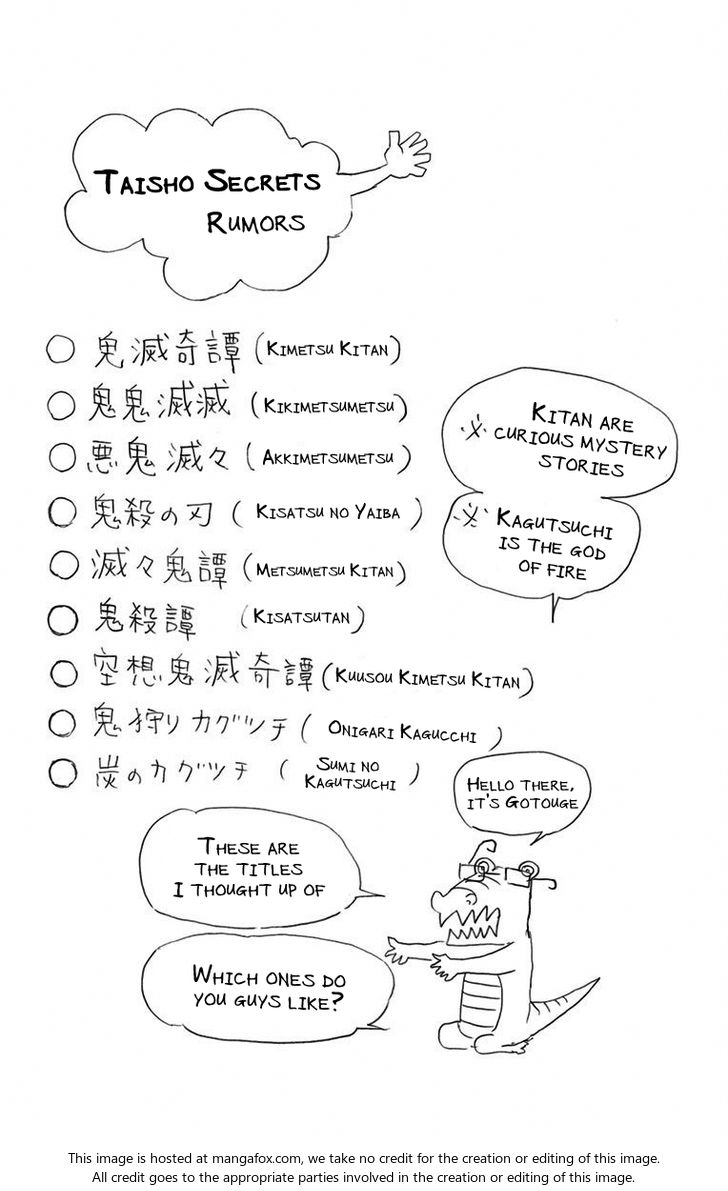 TAISHO SECRETS
RUMORS
○ 鬼滅奇譚 (KIMETSU KITAN)
○ 鬼鬼滅滅 (KIKIMETSUMETSU)
○ 悪鬼滅々 (AKKIMETSUMETSU)
○ 鬼殺の刃 (KISATSU NO YAIBA)
○ 滅々鬼譚 (METSUMETSU KITAN)
○ 鬼殺譚 (KISATSUTAN)
○ 空想鬼滅奇譚 (KUUSOU KIMETSU KITAN)
○ 鬼狩りカグツチ (ONIGARI KAGUCCHI)
○ 炭のカグツチ (SUMI NO
KAGUTSUCHI)
※ KITAN ARE
CURIOUS MYSTERY
STORIES
※ KAGUTSUCHI
IS THE GOD
OF FIRE
HELLO THERE,
IT'S GOTOUGE
THESE ARE
THE TITLES
I THOUGHT UP OF
WHICH ONES DO
YOU GUYS LIKE?
This image is hosted at mangafox.com, we take no credit for the creation or editing of this image.
All credit goes to the appropriate parties involved in the creation or editing of this image.